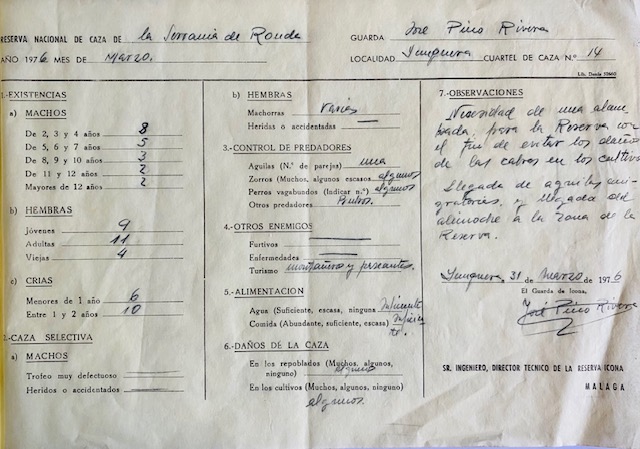 RESERVA NACIONAL DE CAZA DE la Serrania de Ronda
AÑO 1976 MES DE Marzo.
GUARDA José Pino Rivera
LOCALIDAD Yunquera CUARTEL DE CAZA N.º 14
1.-EXISTENCIAS
a) MACHOS
De 2, 3 y 4 años 8
De 5, 6 y 7 años 5
De 8, 9 y 10 años 3
De 11 y 12 años 2
Mayores de 12 años 2
b) HEMBRAS
Jóvenes 9
Adultas 11
Viejas 4
c) CRIAS
Menores de 1 año 6
Entre 1 y 2 años 10
2.-CAZA SELECTIVA
a) MACHOS
Trofeo muy defectuoso
Heridos o accidentados
b) HEMBRAS
Machorras varias
Heridas o accidentadas
3.-CONTROL DE PREDADORES
Aguilas (N.º de parejas) una
Zorros (Muchos, algunos escasos) algunos
Perros vagabundos (Indicar n.º) algunos
Otros predadores
4.-OTROS ENEMIGOS
Furtivos
Enfermedades
Turismo montañeros y paseantes.
5.-ALIMENTACION
Agua (Suficiente, escasa, ninguna suficiente
Comida (Abundante, suficiente, escasa)
6.-DAÑOS DE LA CAZA
En los repoblados (Muchos, algunos,
ninguno)
En los cultivos (Muchos, algunos, ninguno)
algunos.
7.-OBSERVACIONES
Necesidad de una alam
bada, para la Reserva con
el fin de evitar los daños
de las cabras en los cultivos
Llegada de aguilas mi-
gratorias, y llegada del
alimoche a la zona de la
Reserva.
Yunquera, 31 de marzo de 1976
El Guarda de Icona,
José Pino Rivera
SR. INGENIERO, DIRECTOR TECNICO DE LA RESERVA ICONA
MALAGA